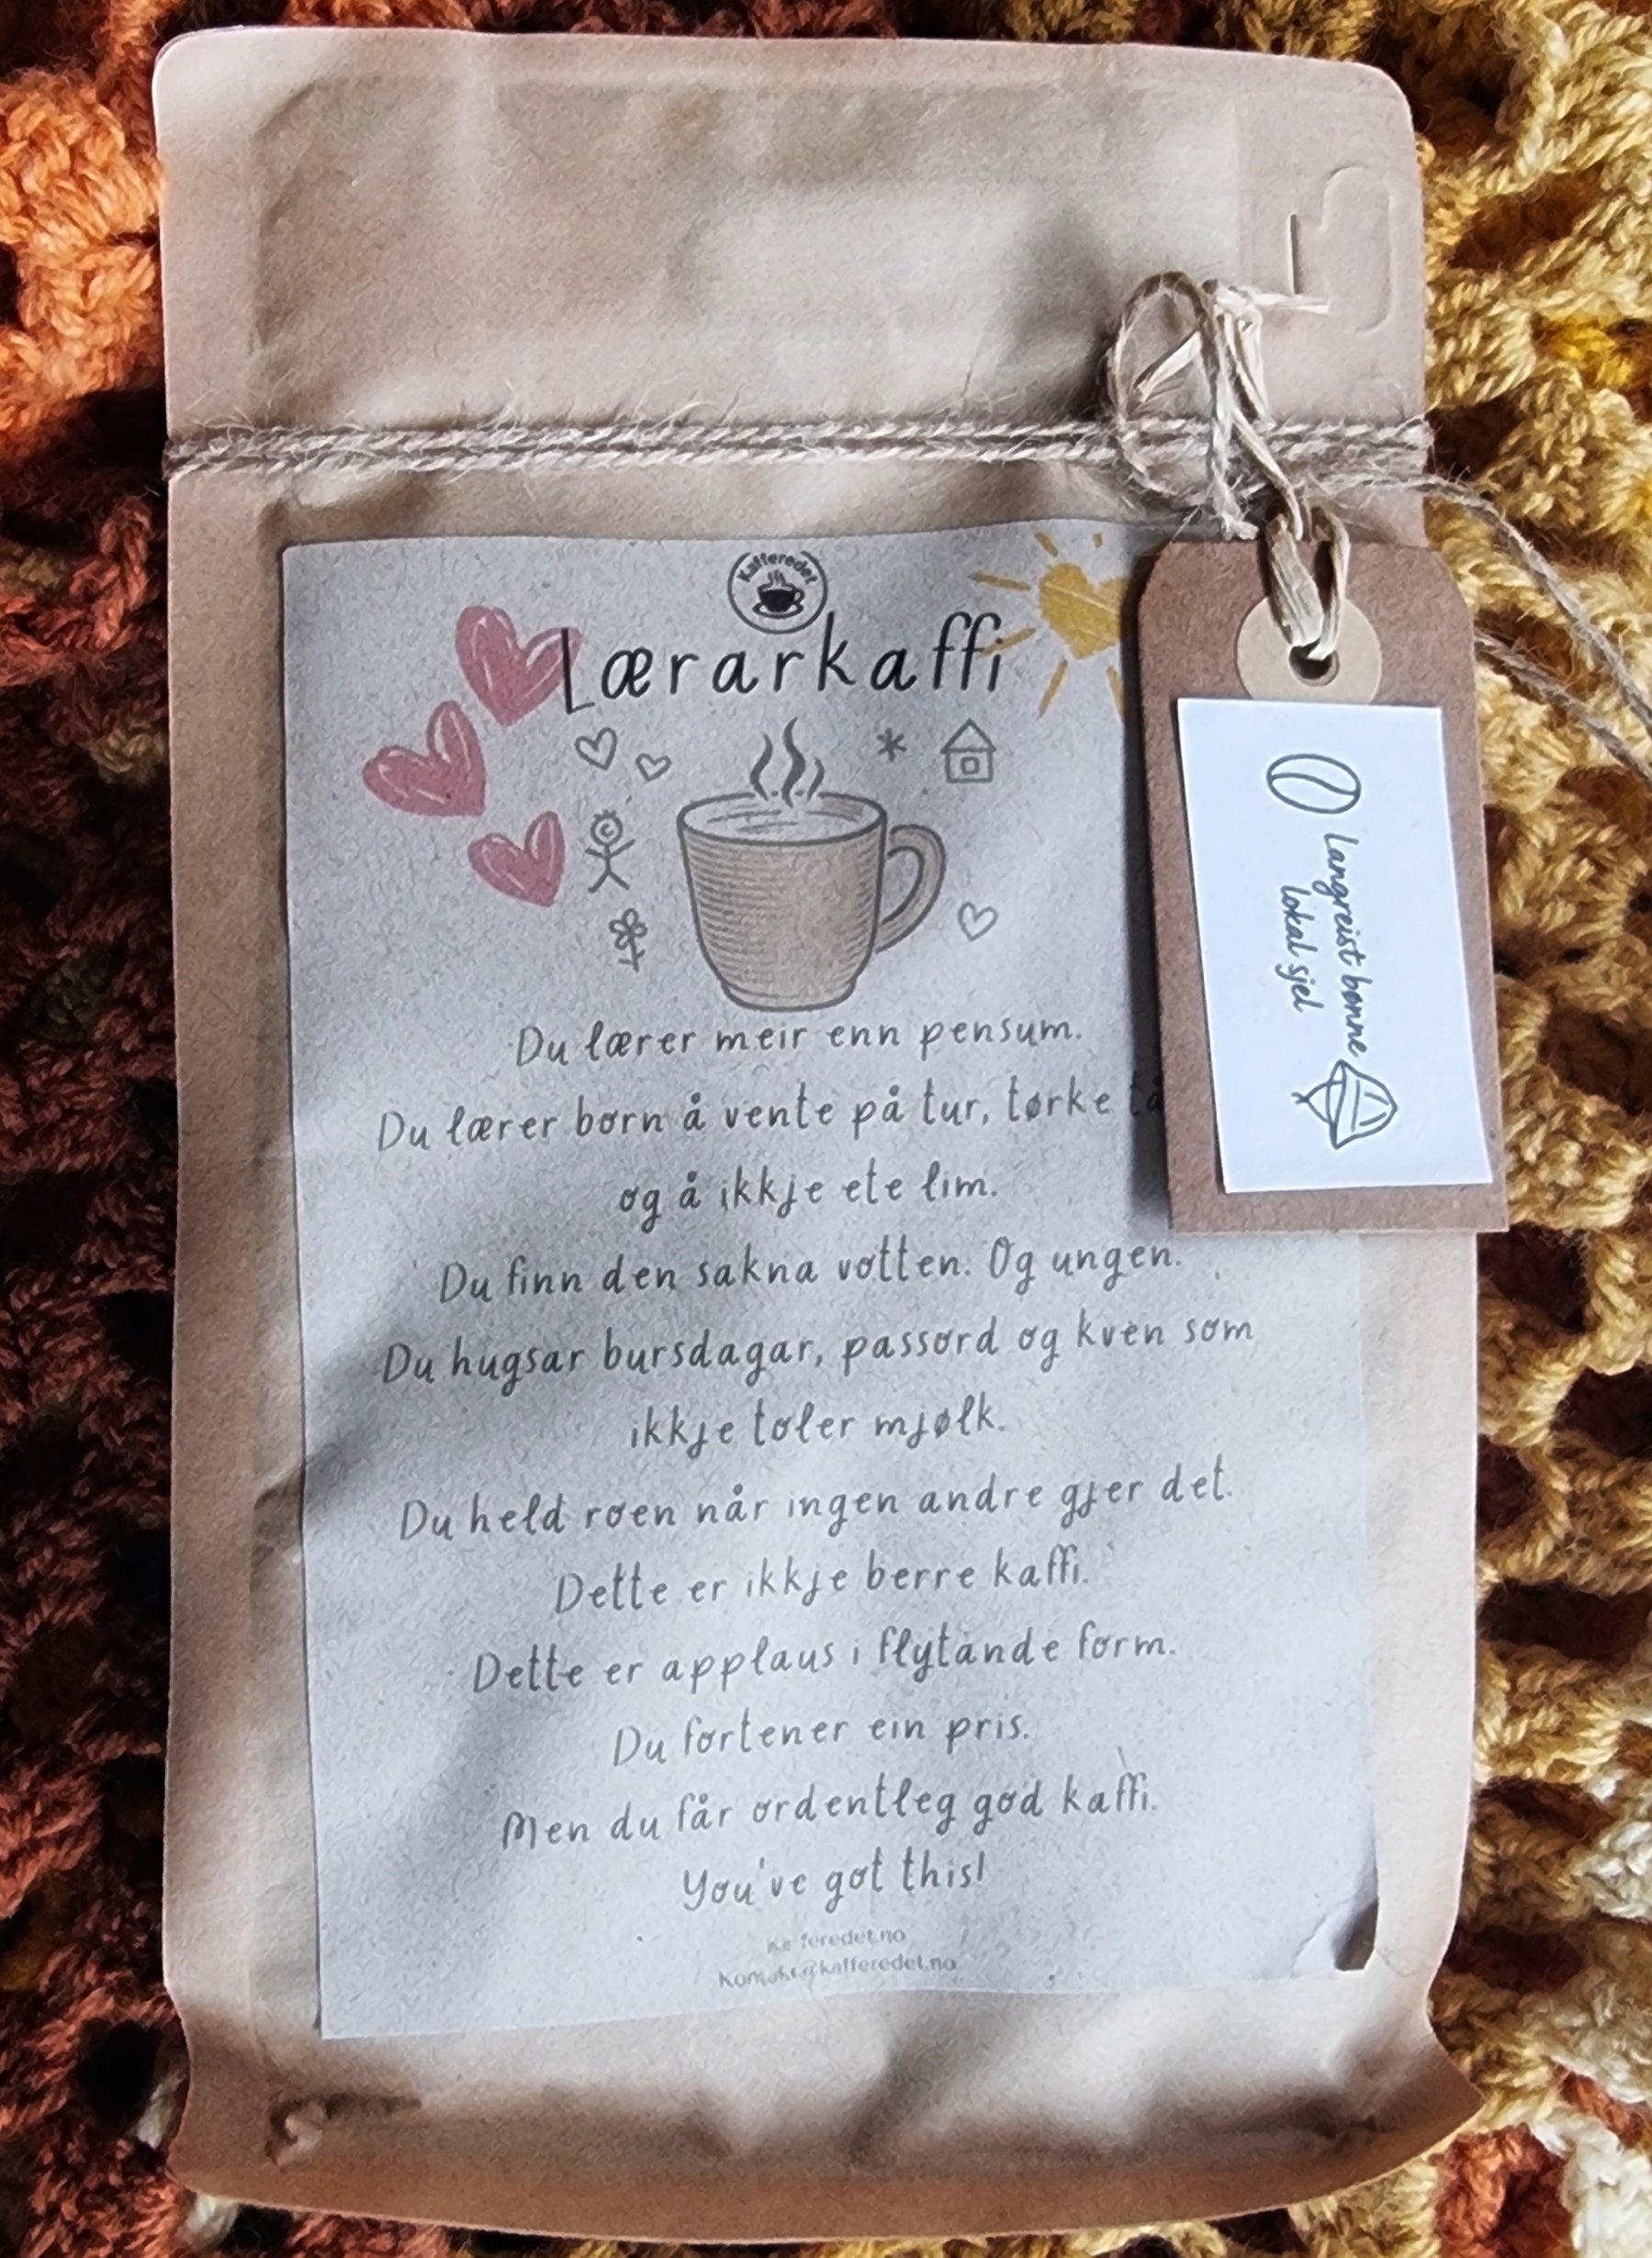 Kafferedet
Lærarkaffi
Du lærer meir enn pensum.
Du lærer born å vente på tur, tørke
og å ikkje ete lim.
Du finn den sakna votten. Og ungen.
Du hugsar bursdagar, passord og kven som
ikkje toler mjølk.
Du held roen når ingen andre gjer det.
Dette er ikkje berre kaffi.
Dette er applaus i flytande form.
Du fortener ein pris.
Men du får ordentleg god kaffi.
You've got this!
Kafferedet.no
Kontakt@kafferedet.no
Langreist bønne
lokal sjel